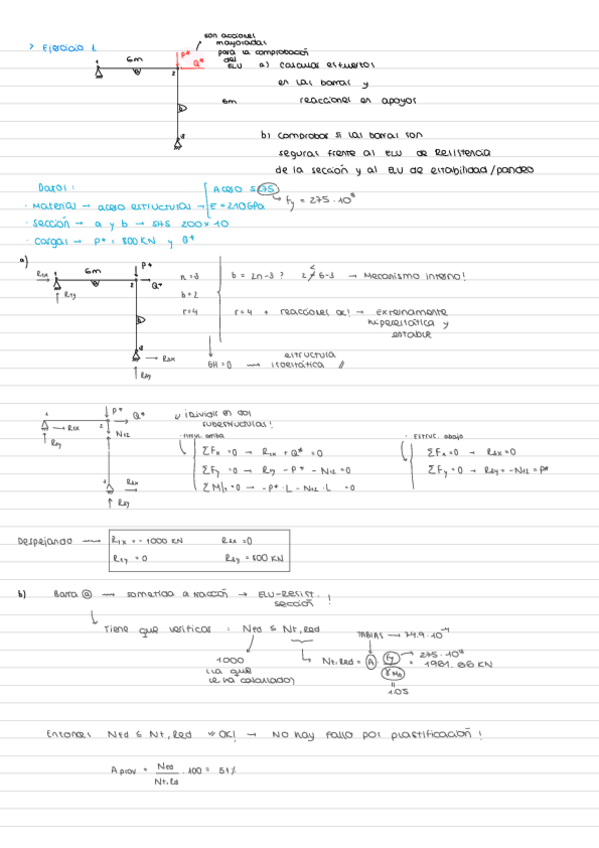 > Ejercicio 1
son acciones
mayoradas
para la comprobación
del
ELU
6m
P*
Q*
1
2
a
b
3
6m
a) calcular esfuerzos
en las barras y
reacciones en apoyos
b) comprobar si las barras son
seguras frente al ELU de Resistencia
de la sección y al ELU de estabilidad/pandeo
Datos:
· Material → acero estructural → Acero S275 → Fy = 275·10⁶
E = 210GPa
· Sección → a y b → SHS 200×10
· Cargas → P* = 800 KN y Q*
a)
R1x
R1y
6m
P*
Q*
R3x
R3y
n=3
b=2
r=4
b = 2n-3 ? 2 ≠ 6-3 → Mecanismo interno!
r=4 + reacciones ok! → externamente
hiperestática y
estable
GH=0 → estructura
isostática //
P*
Q*
R1x
R1y
N12
R3x
R3y
¡dividir en dos
subestructuras!
· estruc. arriba
ΣFx =0 → R1x + Q* =0
ΣFy =0 → R1y - P* - N12 =0
ΣM|1 =0 → -P*·L - N12·L =0
· Estruc. abajo
ΣFx =0 → R3x=0
ΣFy =0 → R3y = -N12 = P*
Despejando → R1x = -1000 KN R3x =0
R1y = 0 R3y = 800 KN
b) Barra a → sometida a tracción → ELU-Resist.
sección !
Tiene que verificar: Ned ≤ Nt,Red
1000
(la que
se ha calculado)
TABLAS → 74.9·10⁻⁴
Nt.Red = A · Fy / γM0 = 1961.66 KN
→ 275·10⁶
1.05
Entonces Ned ≤ Nt,Red → OK! → No hay fallo por plastificación!
Aprov = Ned / Nt.Rd · 100 = 51%